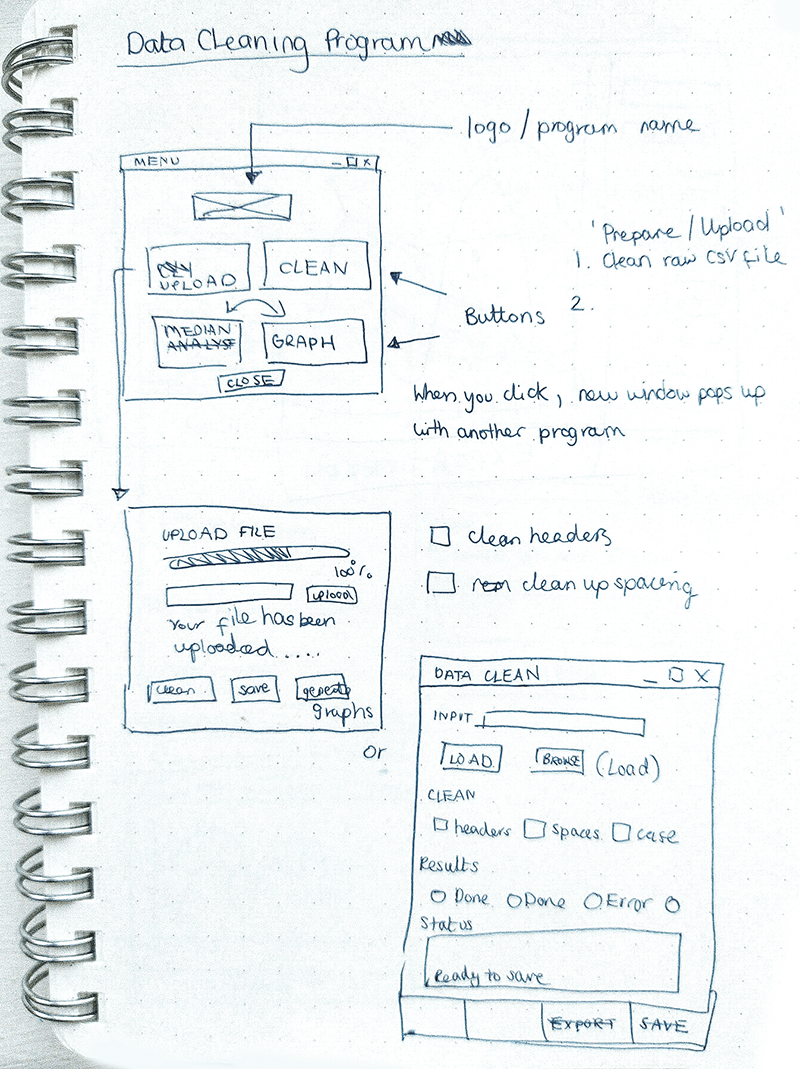 Data Cleaning Program
logo / program name
MENU
_ □ X
'Prepare / Upload'
1. Clean raw CSV file
2.
UPLOAD
CLEAN
Buttons
MEDIAN
ANALYSE
GRAPH
CLOSE
When you click, new window pops up
with another program
UPLOAD FILE
100%
upload
Your file has been
uploaded .....
clean
save
generate
graphs
clean headers
clean up spacing
or
DATA CLEAN
_ □ X
INPUT
LOAD
BROWSE
(Load)
CLEAN
headers
spaces
case
Results
Done
Done
Error
Status
Ready to save
EXPORT
SAVE